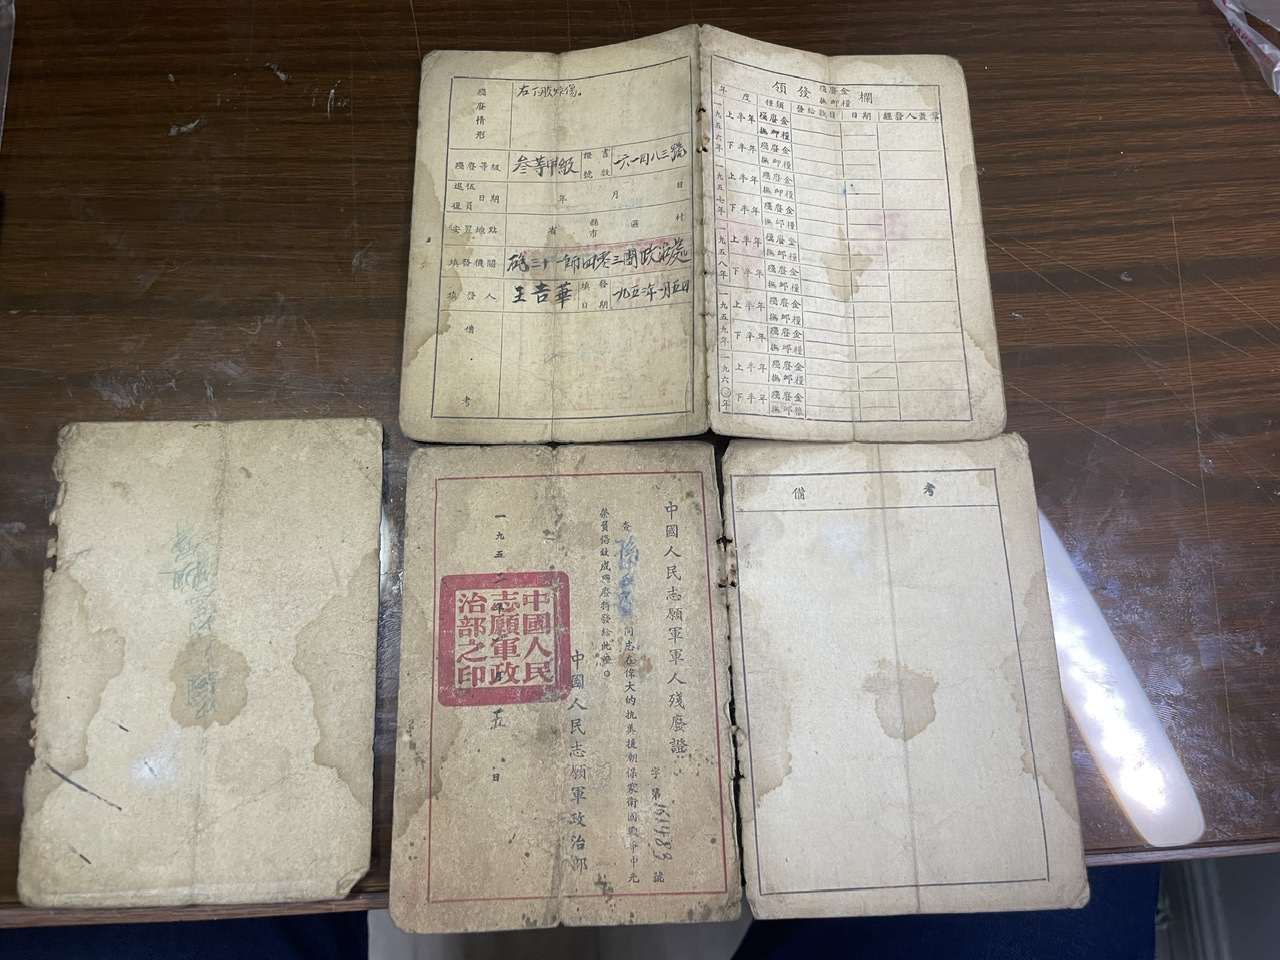 殘廢情形
右下肢炸傷。
殘廢等級 叁等甲級 證書號數 一六一四八三號
退伍復員日期 年 月 日
安置地點 省 縣市 區 村
填發機關 砲三十一師四零三團政治處
填發人 王吉華 填發日期 一九五六年一月五日
備考
領發殘廢金撫卹糧欄
年度 種類 發給數目 日期 經發人蓋章
一九五六年 上半年 殘廢金
撫卹糧
下半年 殘廢金
撫卹糧
一九五七年 上半年 殘廢金
撫卹糧
下半年 殘廢金
撫卹糧
一九五八年 上半年 殘廢金
撫卹糧
下半年 殘廢金
撫卹糧
一九五九年 上半年 殘廢金
撫卹糧
下半年 殘廢金
撫卹糧
一九六〇年 上半年 殘廢金
撫卹糧
下半年 殘廢金
撫卹糧
中國人民志願軍軍人殘廢證
字第161483號
查 孫 同志在偉大的抗美援朝保家衛國戰爭中光
榮負傷致成殘廢特發給此證。
中國人民志願軍政治部
一九五二年 月 五日
中國人民
志願軍政
治部之印
備考